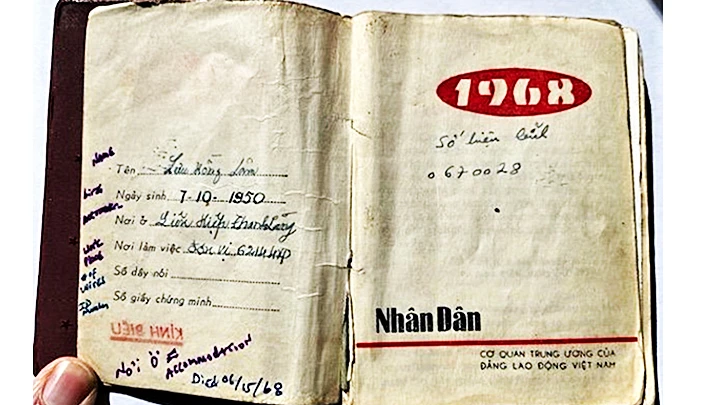 Name
Tên Lưu Hồng Lâm
birth
Ngày sinh 7-10-1950
Nơi ở Liên Hiệp
work place
Nơi làm việc Đơn vị
# of wires
Số dây nói
ID Number
Số giấy chứng minh
KÍNH BIẾU
NƠI Ở = ACCOMMODATION
Died 06/15/68
1968
Số hiện
0670028
Nhân Dân
CƠ QUAN TRUNG ƯƠNG CỦA
ĐẢNG LAO ĐỘNG VIỆT NAM